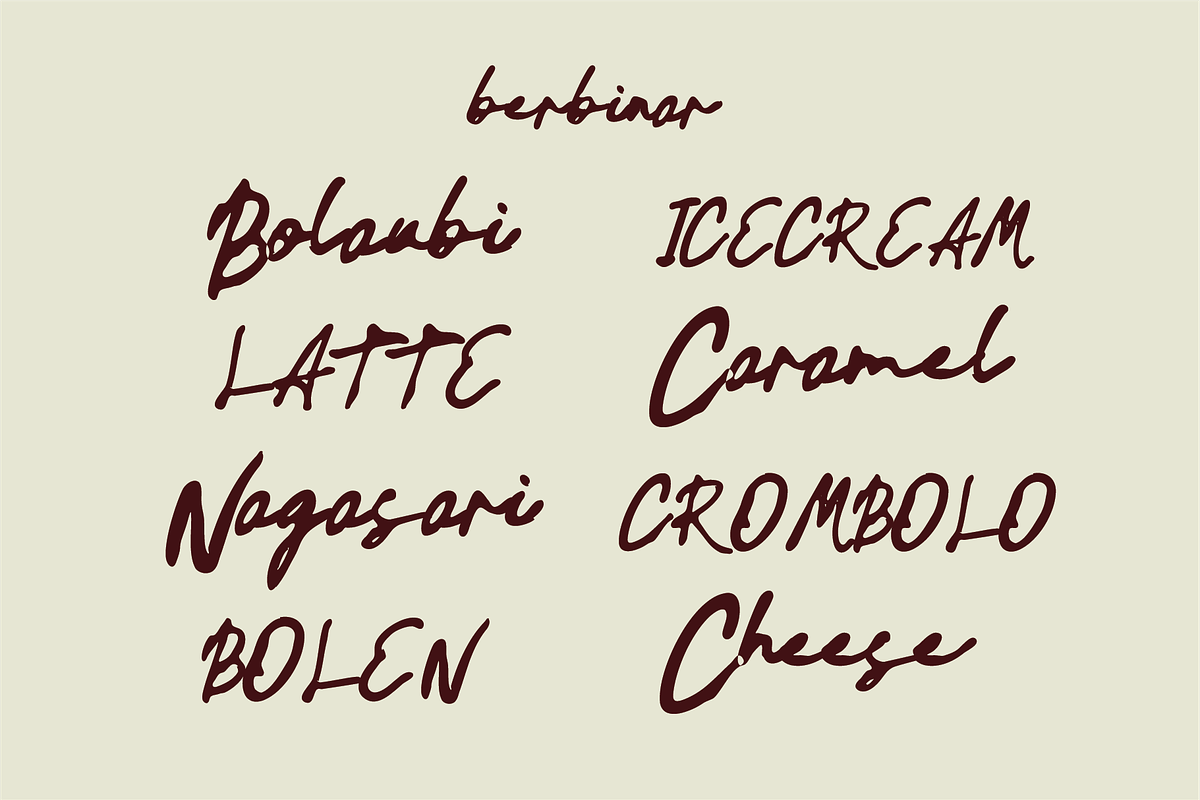 berbinar
Bolaubi ICECREAM
LATTE Caramel
Nagasari CROMBOLO
BOLEN Cheese